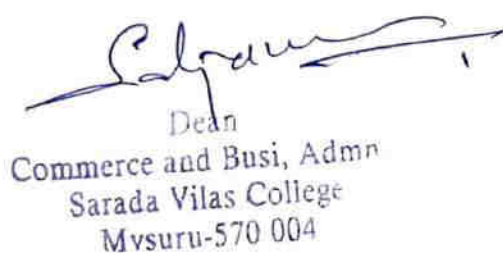 Dean
Commerce and Busi, Admn
Sarada Vilas College
Mysuru-570 004